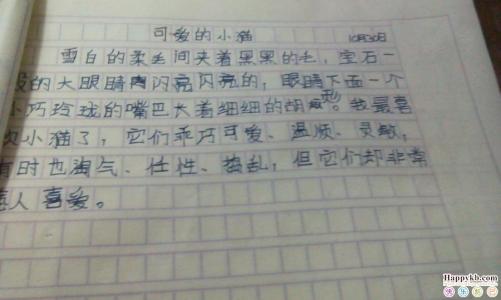 可爱的小猫 10月30日
雪白的柔毛间夹着黑黑的毛，宝石一
般的大眼睛闪亮闪亮的，眼睛下面一个
小巧玲珑的嘴巴长着细细的胡 我最喜
欢小猫了，它们乖巧可爱、温顺、灵敏，
有时也淘气、任性、捣乱，但它们却非常
惹人喜爱。
Happykb.com